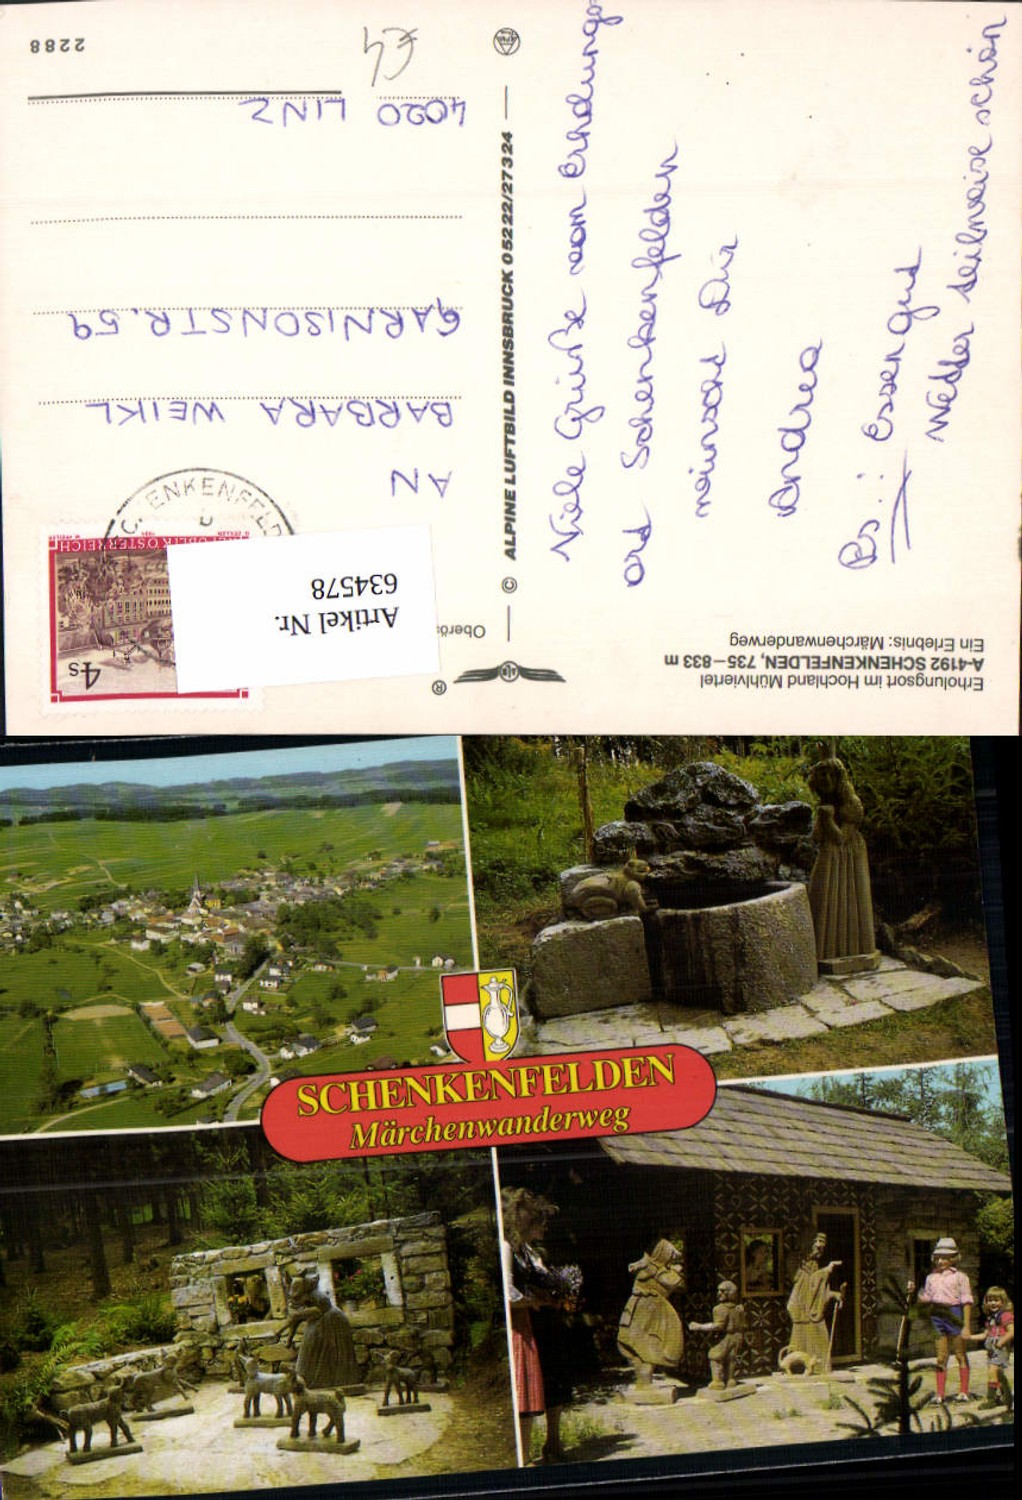 Erholungsort im Hochland Mühlviertel
A-4192 SCHENKENFELDEN, 735–833 m
Ein Erlebnis: Märchenwanderweg
Viele Grüße vom Erholungs-
ort Schenkenfelden
wünscht Dir
Andrea
Ps.: Essen gut
Wetter teilweise schön
© ALPINE LUFTBILD INNSBRUCK 05222/27324
®
Oberös
Artikel Nr.
634578
4s
REPUBLIK ÖSTERREICH
SCHENKENFELD
AN
BARBARA WEIKL
GARNISONSTR. 59
4020 LINZ
€4
2288
SCHENKENFELDEN
Märchenwanderweg